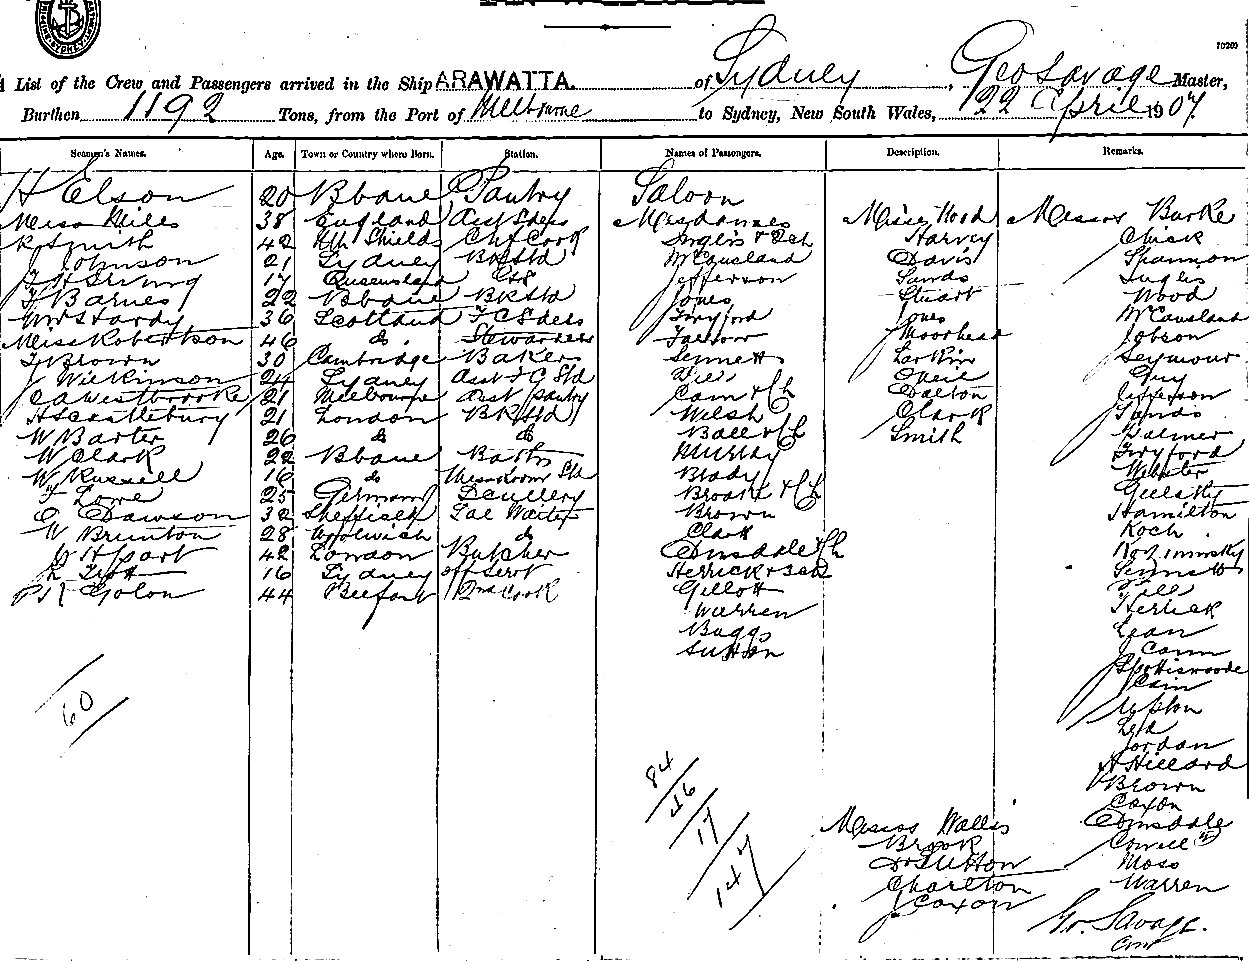 List of the Crew and Passengers arrived in the Ship ARAWATTA. of Sydney, Geo Savage Master,
Burthen 1192 Tons, from the Port of Melbourne to Sydney, New South Wales, 22 April 1907.
Seamen's Names. Age. Town or Country where Born. Station. Names of Passengers. Description. Remarks.
H Elson 20 Bbane Pantry Saloon
Miss Miles 38 England Mesdames Misses Hood Messrs Burke
R Smith 42 Nth Shields Chf Cook Inglis Harvey Chick
J Johnson 21 Sydney McCausland Davis Shannon
17 Queensland Jefferson Sands Inglis
F Barnes 22 Bbane Jones Stuart Wood
Mrs Hardy 36 Scotland Twyford Jones McCausland
Miss Robertson 46 do Stewardess Moorhead Jobson
F Brown 30 Cambridge Baker Sennett Larkin Seymour
J Wilkinson 24 Sydney Neil Guy
C A Westbrooke 21 Melbourne Asst Pantry Cam & Ch Dalton Jefferson
H Scattlebury 21 London Welsh Clark Sands
W Barter 26 do do Ball & Ch Smith Palmer
W Clark 22 Bbane Baths Murray Twyford
W Russell 16 do Messroom Std Brady Webster
F Lowe 25 Germany Scullery Brooke & Ch
C Dawson 32 Sheffield Sal Waiter Brown Hamilton
W Brunton 28 Woolwich do Clark Koch
42 London Butcher Edmsdale & Ch
16 Sydney Herrick Sennett
Golon 44 Belfast 2nd Cook Gillott
Warren Herrick
Buggs Lean
Sutton J Cann
60 Spottiswoode
Cain
Lypton
Jordan
84 H Hillard
46 Brown
17 Coxon
147 Messrs Wallis Edmsdale
Brook
Dr Sutton Moss
Charlton Warren
J Coxon
Geo. Savage.